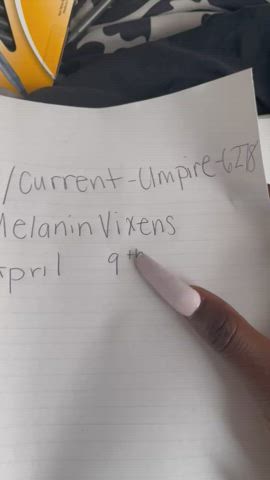 /Current-Umpire-618
MelaninVixens
April 9th